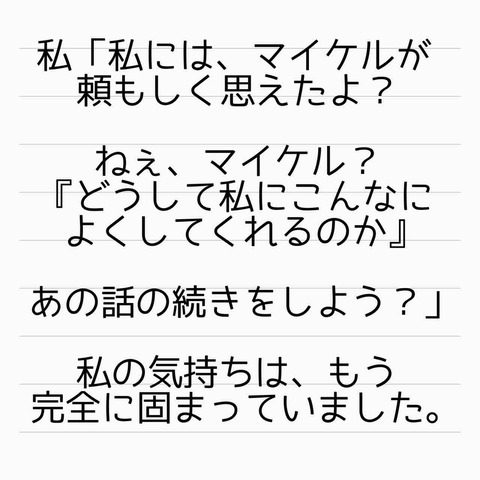 私「私には、マイケルが
頼もしく思えたよ？
ねぇ、マイケル？
『どうして私にこんなに
よくしてくれるのか』
あの話の続きをしよう？」
私の気持ちは、もう
完全に固まっていました。